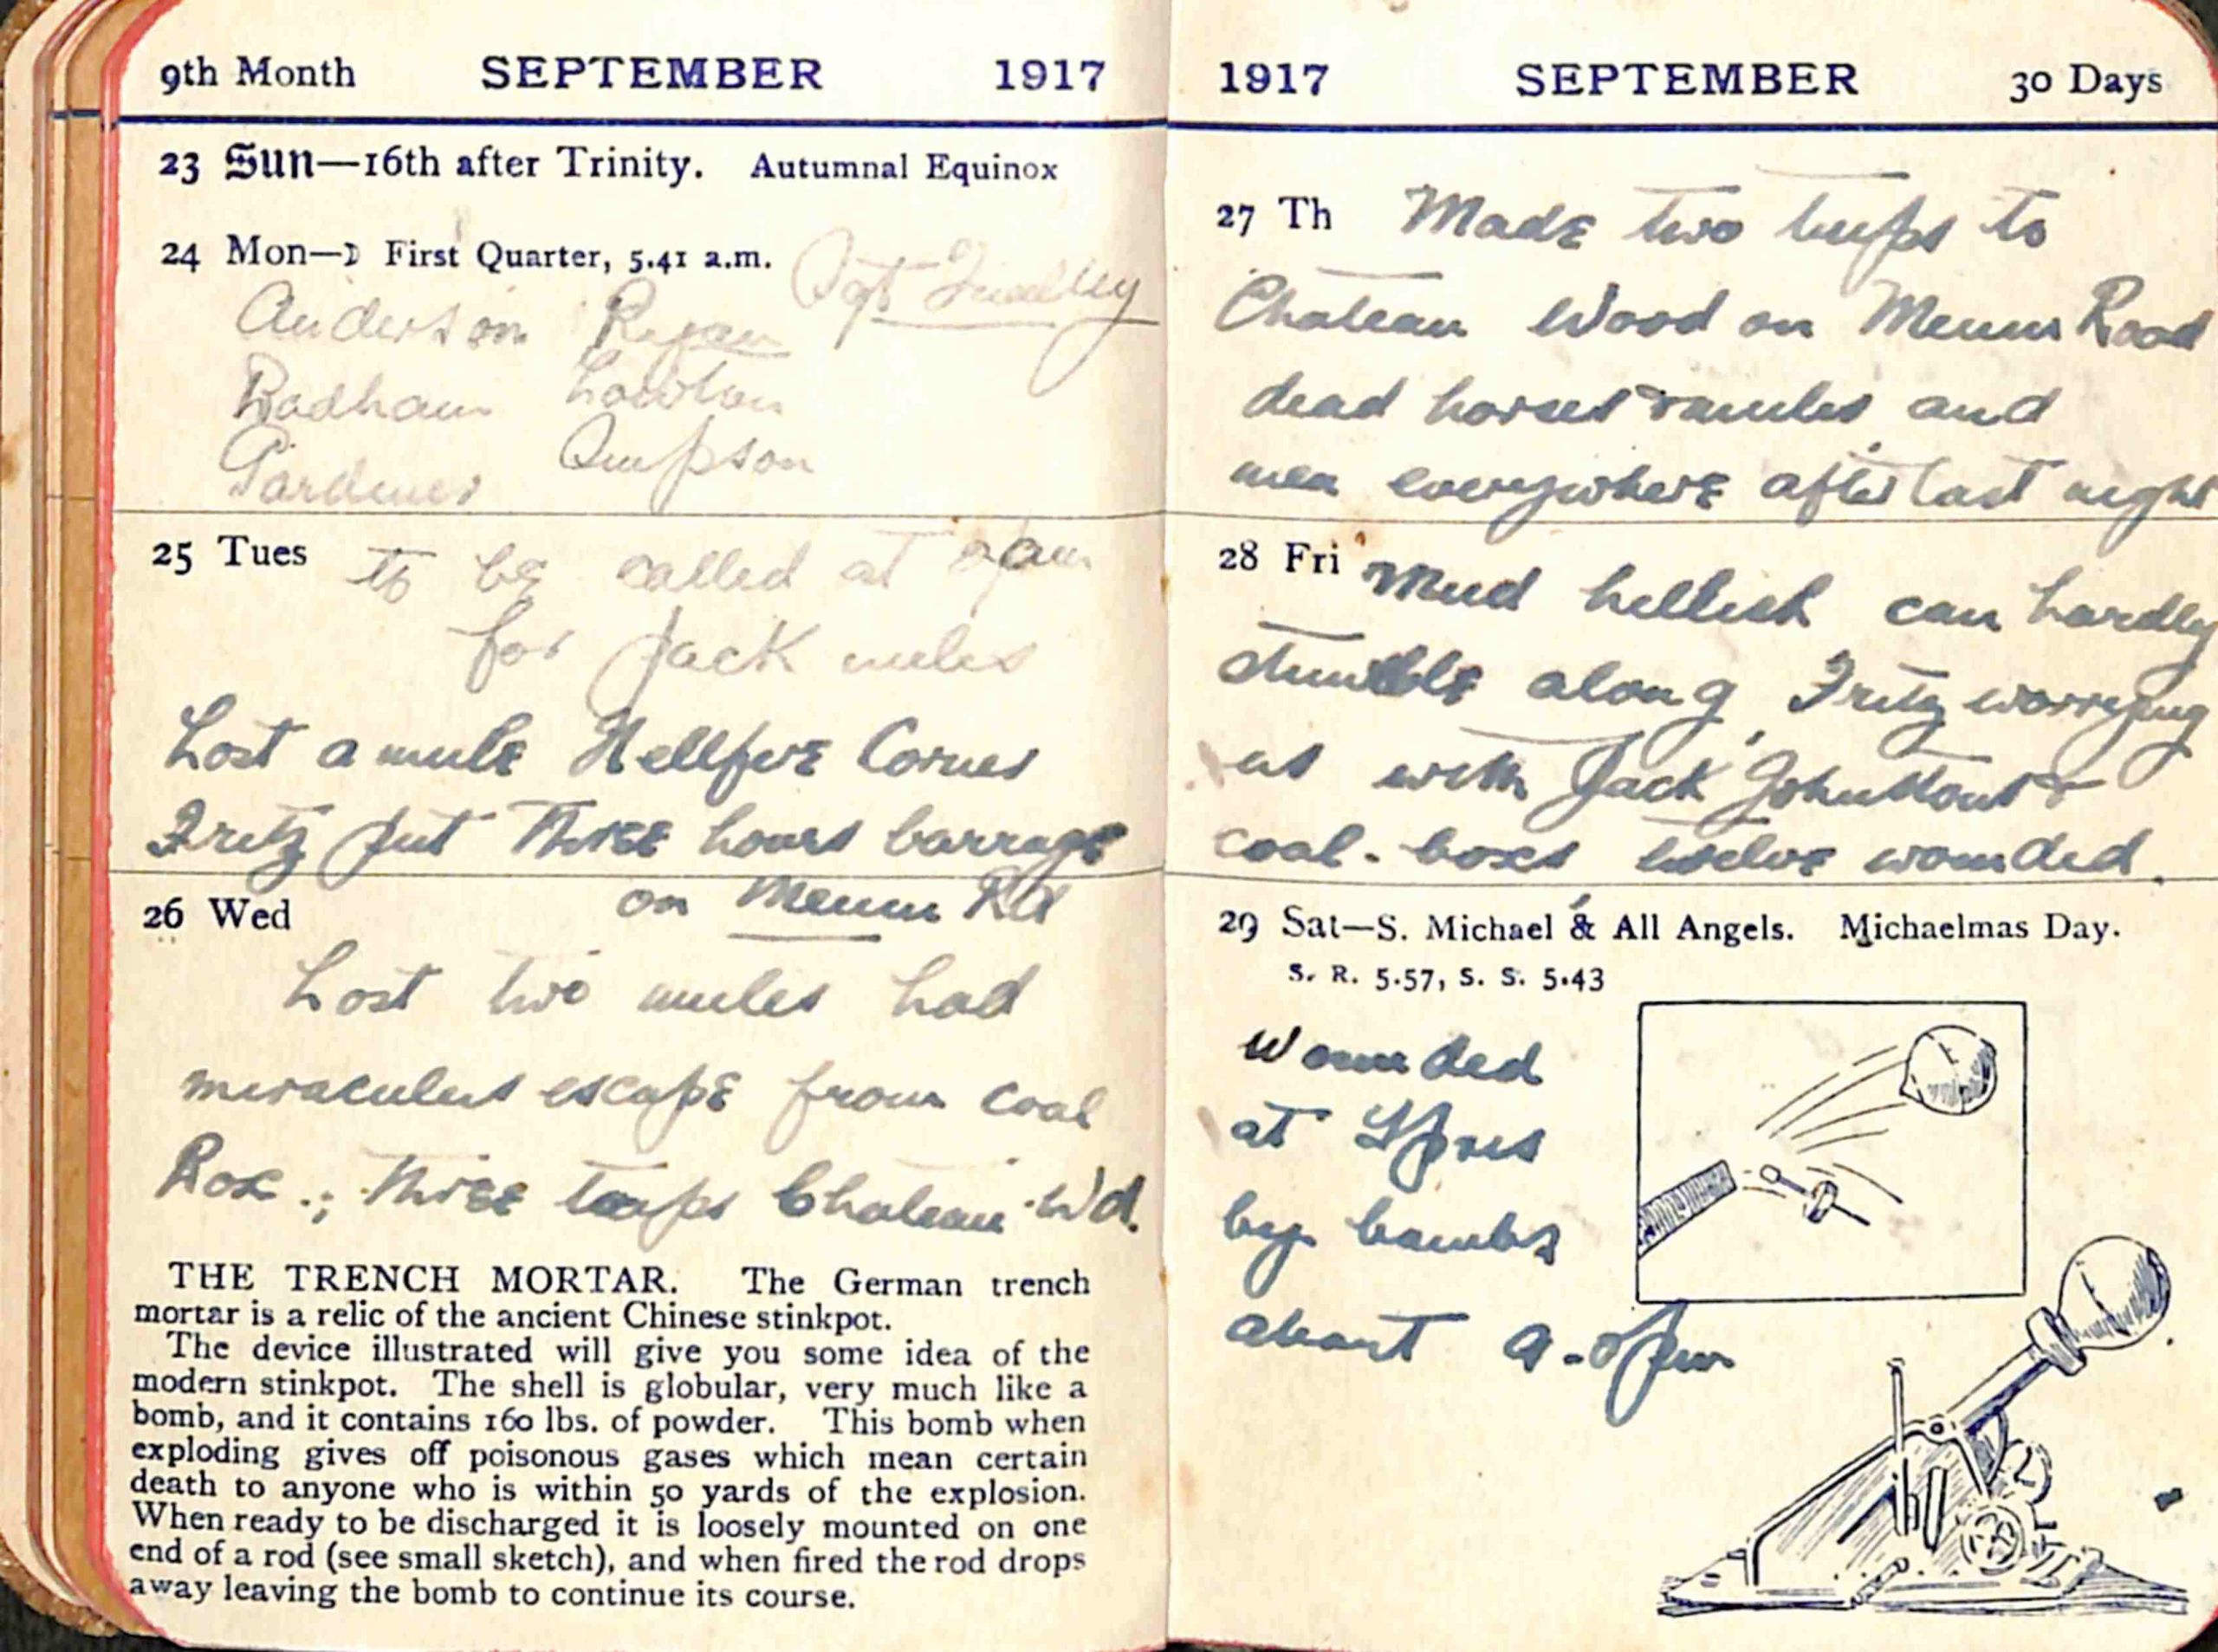 9th Month SEPTEMBER 1917
23 Sun—16th after Trinity. Autumnal Equinox
24 Mon—☽ First Quarter, 5.41 a.m. Sgt
Anderson
Badham Lowton
Gardener Simpson
25 Tues to be called at
for Jack mules
Lost a mule Hellfire Corner
Fritz put three hours barrage
on Menin Rd
26 Wed
Lost two mules had
miraculus escape from coal
Box .; three trips Chateau Wd.
THE TRENCH MORTAR. The German trench
mortar is a relic of the ancient Chinese stinkpot.
The device illustrated will give you some idea of the
modern stinkpot. The shell is globular, very much like a
bomb, and it contains 160 lbs. of powder. This bomb when
exploding gives off poisonous gases which mean certain
death to anyone who is within 50 yards of the explosion.
When ready to be discharged it is loosely mounted on one
end of a rod (see small sketch), and when fired the rod drops
away leaving the bomb to continue its course.
1917 SEPTEMBER 30 Days
27 Th Made two trips to
Chateau Wood on Menin Road
dead horses mules and
men everywhere after last night
28 Fri Mud hellish can hardly
stumble along, Fritz worrying
us with Jack Johnstons &
coal-boxes twelve wounded.
29 Sat—S. Michael & All Angels. Michaelmas Day.
S. R. 5.57, S. S. 5.43
Wounded
at Ypres
by bombs
about 9-0 pm